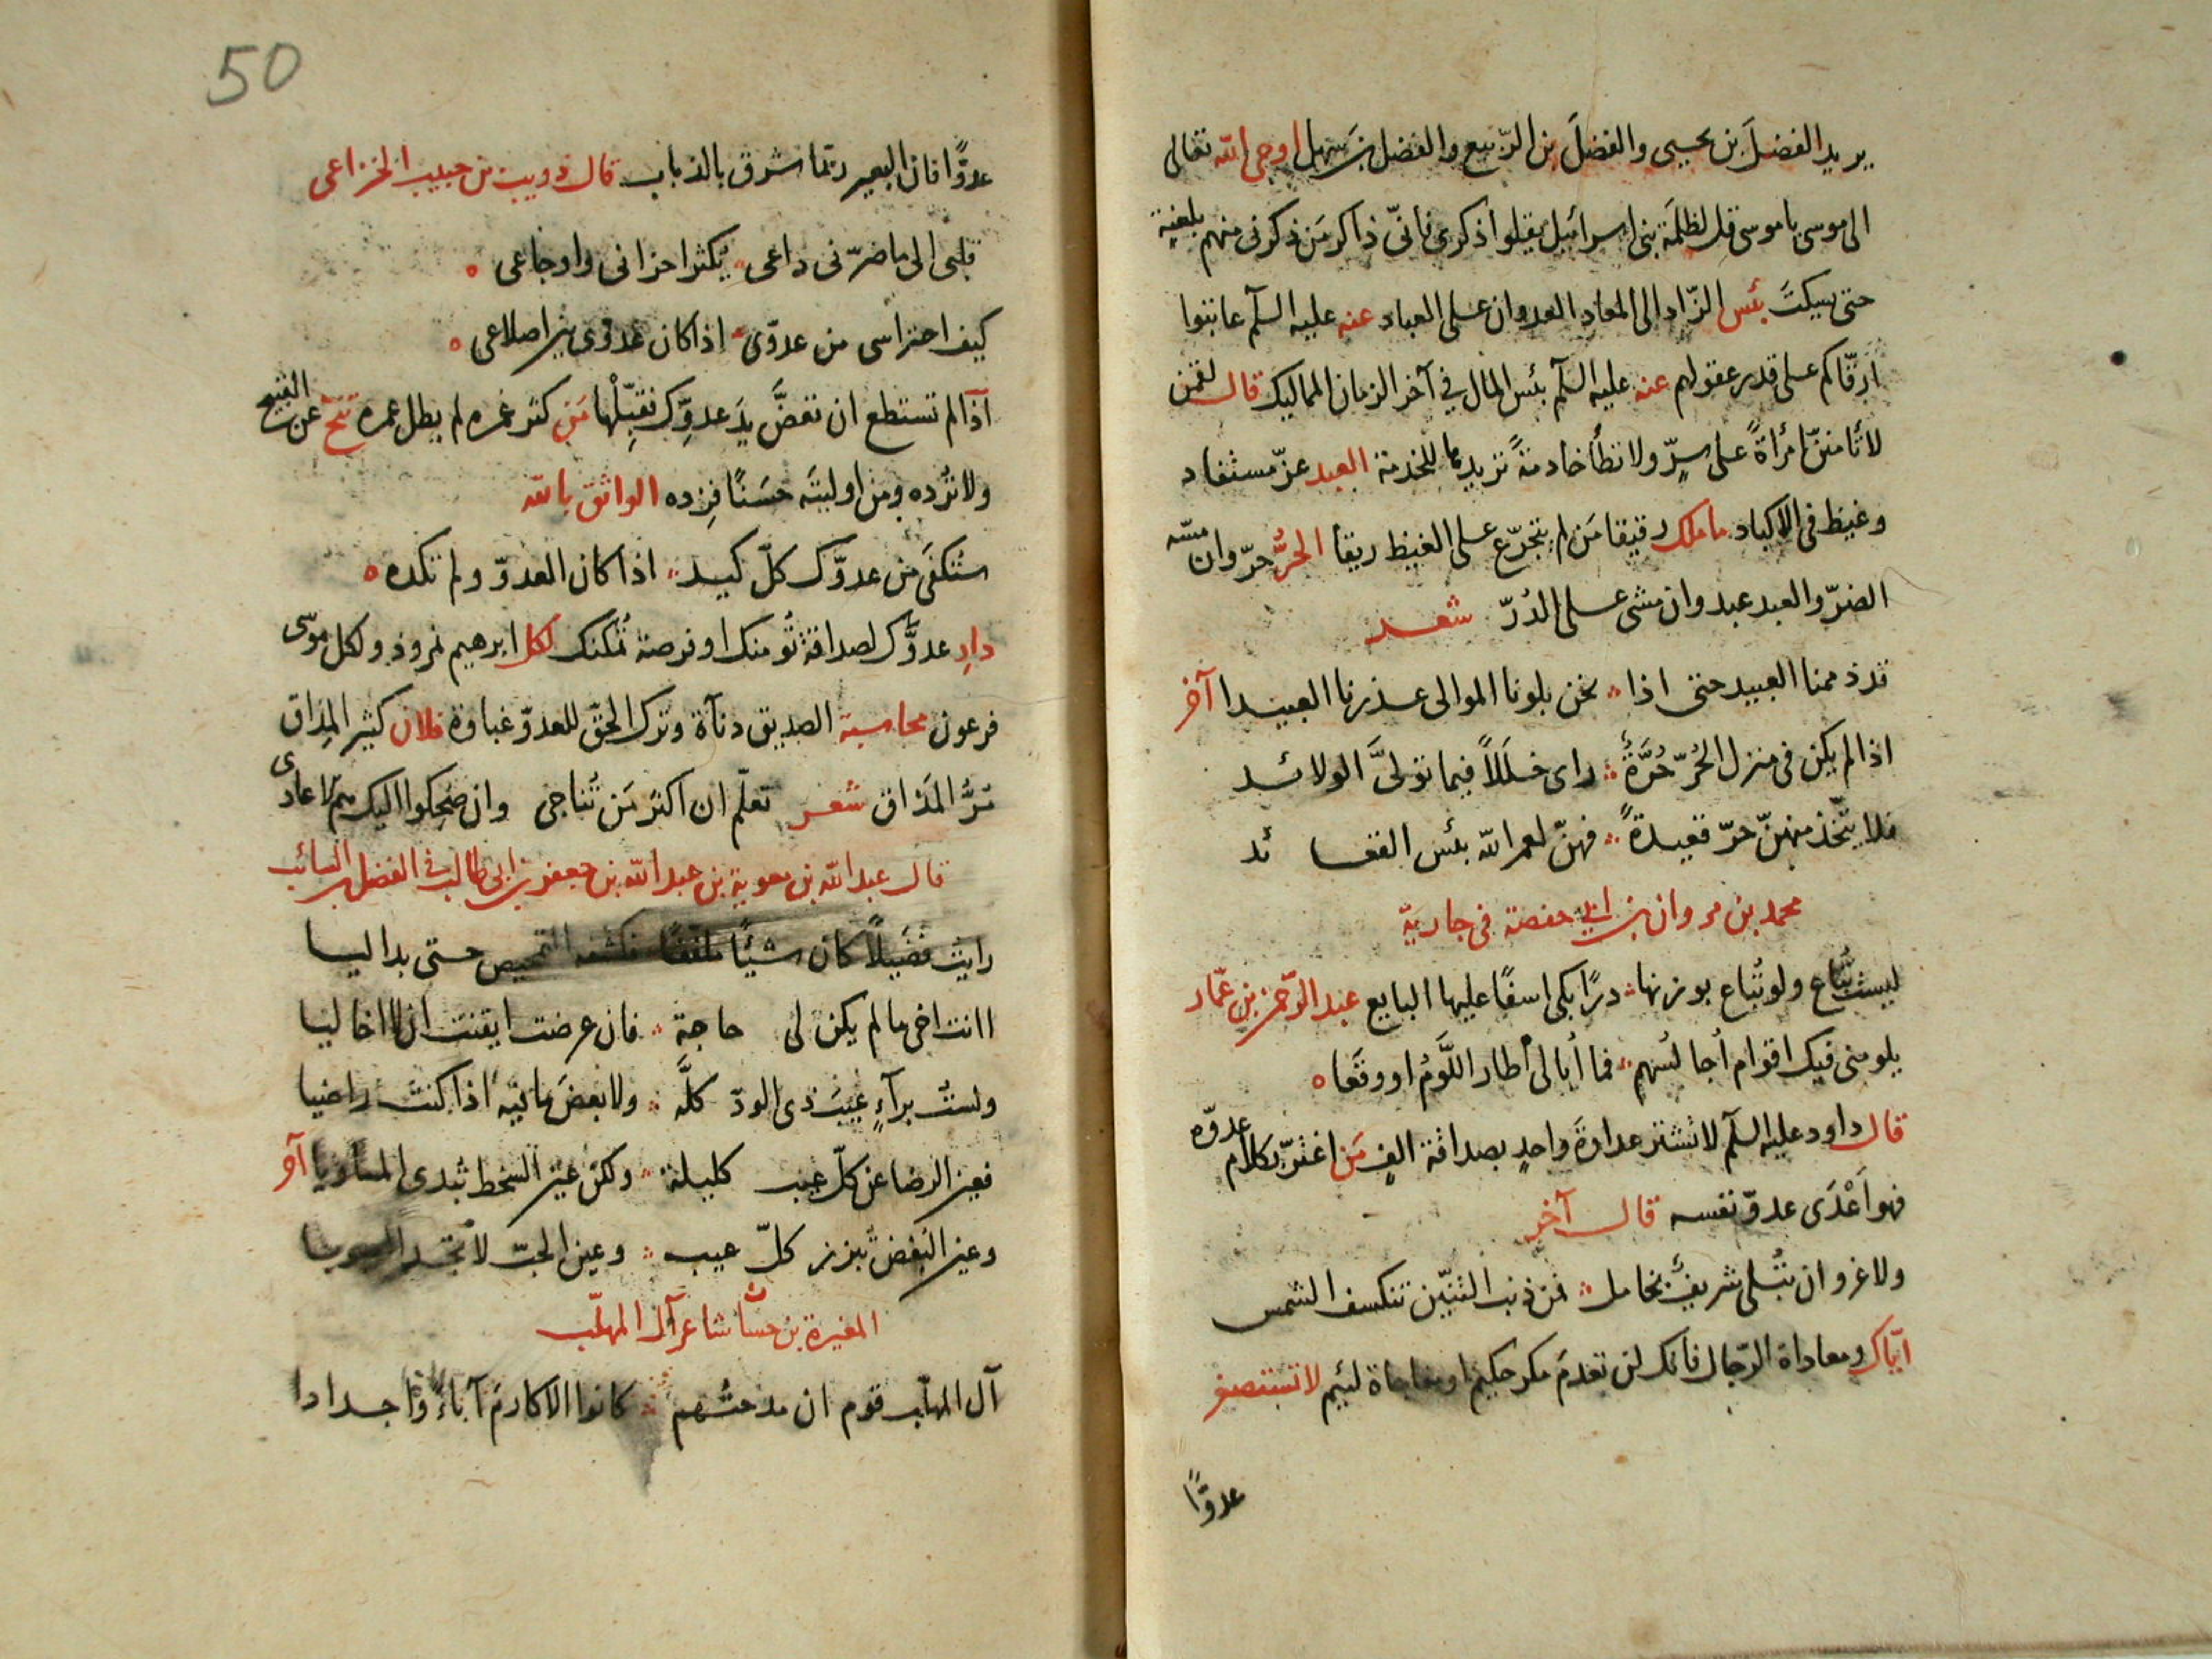 يريد الفضلَ بن يحيى والفضلَ بن الرّبيع والفضل بن سَهل اوحى الله تعالى
الى موسى يا موسى قل لظلمَة بنى اسرائيل يقلوا ذكرى فانّى ذاكر مَن ذكرنى منهم بلعنة
حتى يسكتَ بئس الزّاد الى المعاد العدوان على العباد عنه عليه السلم عاتبوا
ارقّاكم على قدر عقولهم عنه عليه السلم بئس المال في آخر الزمان المماليك قال لقمن
لا تأمننّ امرأةً على سرّ ولا تطأ خادمةً تريدها للخدمة العبد عزّ مستفاد
وغيظ فى الاكباد ما ملك رقيقا مَن لم يتجرّع على الغيظ ريقا الحُرُّ حرّ وان مسّه
الضرّ والعبد عبد وان مشى على الدُرّ شعر
قد ذممنا العبيد حتى اذا نحن بلونا الموالى عذرنا العبيدا آخر
اذا لم يكن فى منزل الحُرّ حُرَّةٌ راى خللاً فيما تولىَّ الولائد
فلا يتّخذ منهنّ حرّ قعيدةً فهنّ لعمر الله بئس القعائد
محمد بن مروان بن ابى حفصة فى جارية
ليست تُباع ولو تُباع بوزنها درّا بكى اسفًا عليها البايع عبد الرّحمن بن عمّار
يلومنى فيك اقوام اُجالسُهم فما اُبالى اطار اللَّومُ او وقَعا ه
قال داود عليه السلم لا تشتر عداوةَ واحدٍ بصداقة الفٍ مَن اغترّ بكلام عدوّه
فهو اَعْدَى عدوّ نفسه قال آخر
ولا غرو ان يُبْلى شريفٌ بخامل فمن ذنب التنّين تنكسف الشمس
ايّاك ومعاداة الرّجال فانك لن تعدمَ مكر حكيم او مفاجاة لئيم لا تستصغر
عدوًّا
50
عدوًّا فان البعير ربّما شرق بالذباب قال ذويب بن حبيب الخزاعى
قلبى الى ما ضرّنى داعى يكثر احزانى واوجاعى ه
كيف احتراسى من عدوّى اذا كان عدوّى بين اضلاعى ه
اذا لم تستطع ان تعضَّ يدَ عدوّك فقبّلْها مَن كثر غمره لم يطل عمره تنحّ عن القبيح
ولا تُرده ومن اوليتَه حسَنًا فزده الواثق بالله
ستُكفَى من عدوّك كلّ كيد اذا كان العدوّ ولم تكده ه
دارِ عدوَّك لصداقة تُومنك او فرصة تُمكنك لكل ابرهيم نمروذ ولكل موسى
فرعون محاسبة الصديق دنآة وترك الحقّ للعدوّ غباوة فلان كثير المِذَاق
مُرُّ المَذاق شعر تعلّم ان اكثر مَن تُناجى وان ضحكوا اليك هم الاعادى
قال عبد الله بن معوية بن عبد الله بن جعفر بن ابى طالب في الفضل بن السائب
رايت فُضَيلاً كان شيئًا ملفّفًا فكشفه التمحيص حتى بدا ليا
اانت اخى ما لم يكن لى حاجة فان عرضت ايقنت ان لا اخا ليا
ولستُ برآءٍ عيبَ ذى الودّ كلَّه ولا بعضَ ما فيه اذا كنتُ راضيا
فعين الرضا عن كلّ عيب كليلة ولكن عين السخط تُبدى المساويا آخر
وعين البُغض تبرز كلّ عيب وعين الحبّ لا تجد العيوبا
المغيرة بن حسّا شاعر آل المهلّب
آل المهلّب قوم ان مدحتُهم كانوا الاكارمَ آباءً واجدادا